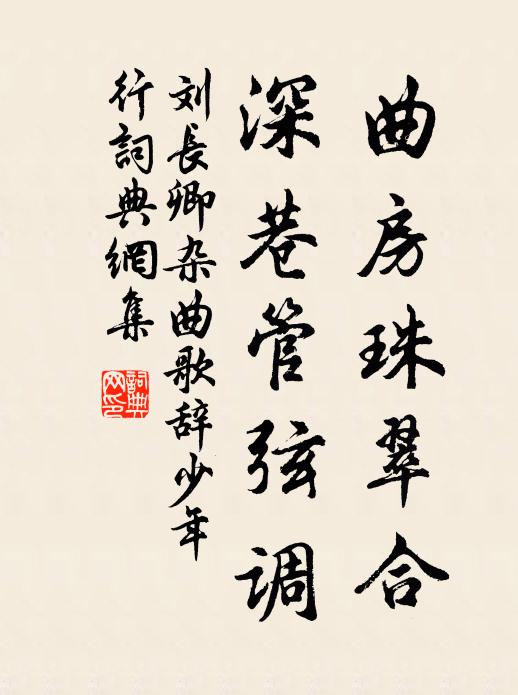 曲房珠翠合
深巷管弦调
刘長卿杂曲歌辞少年
行詞典網集
詞典
网印